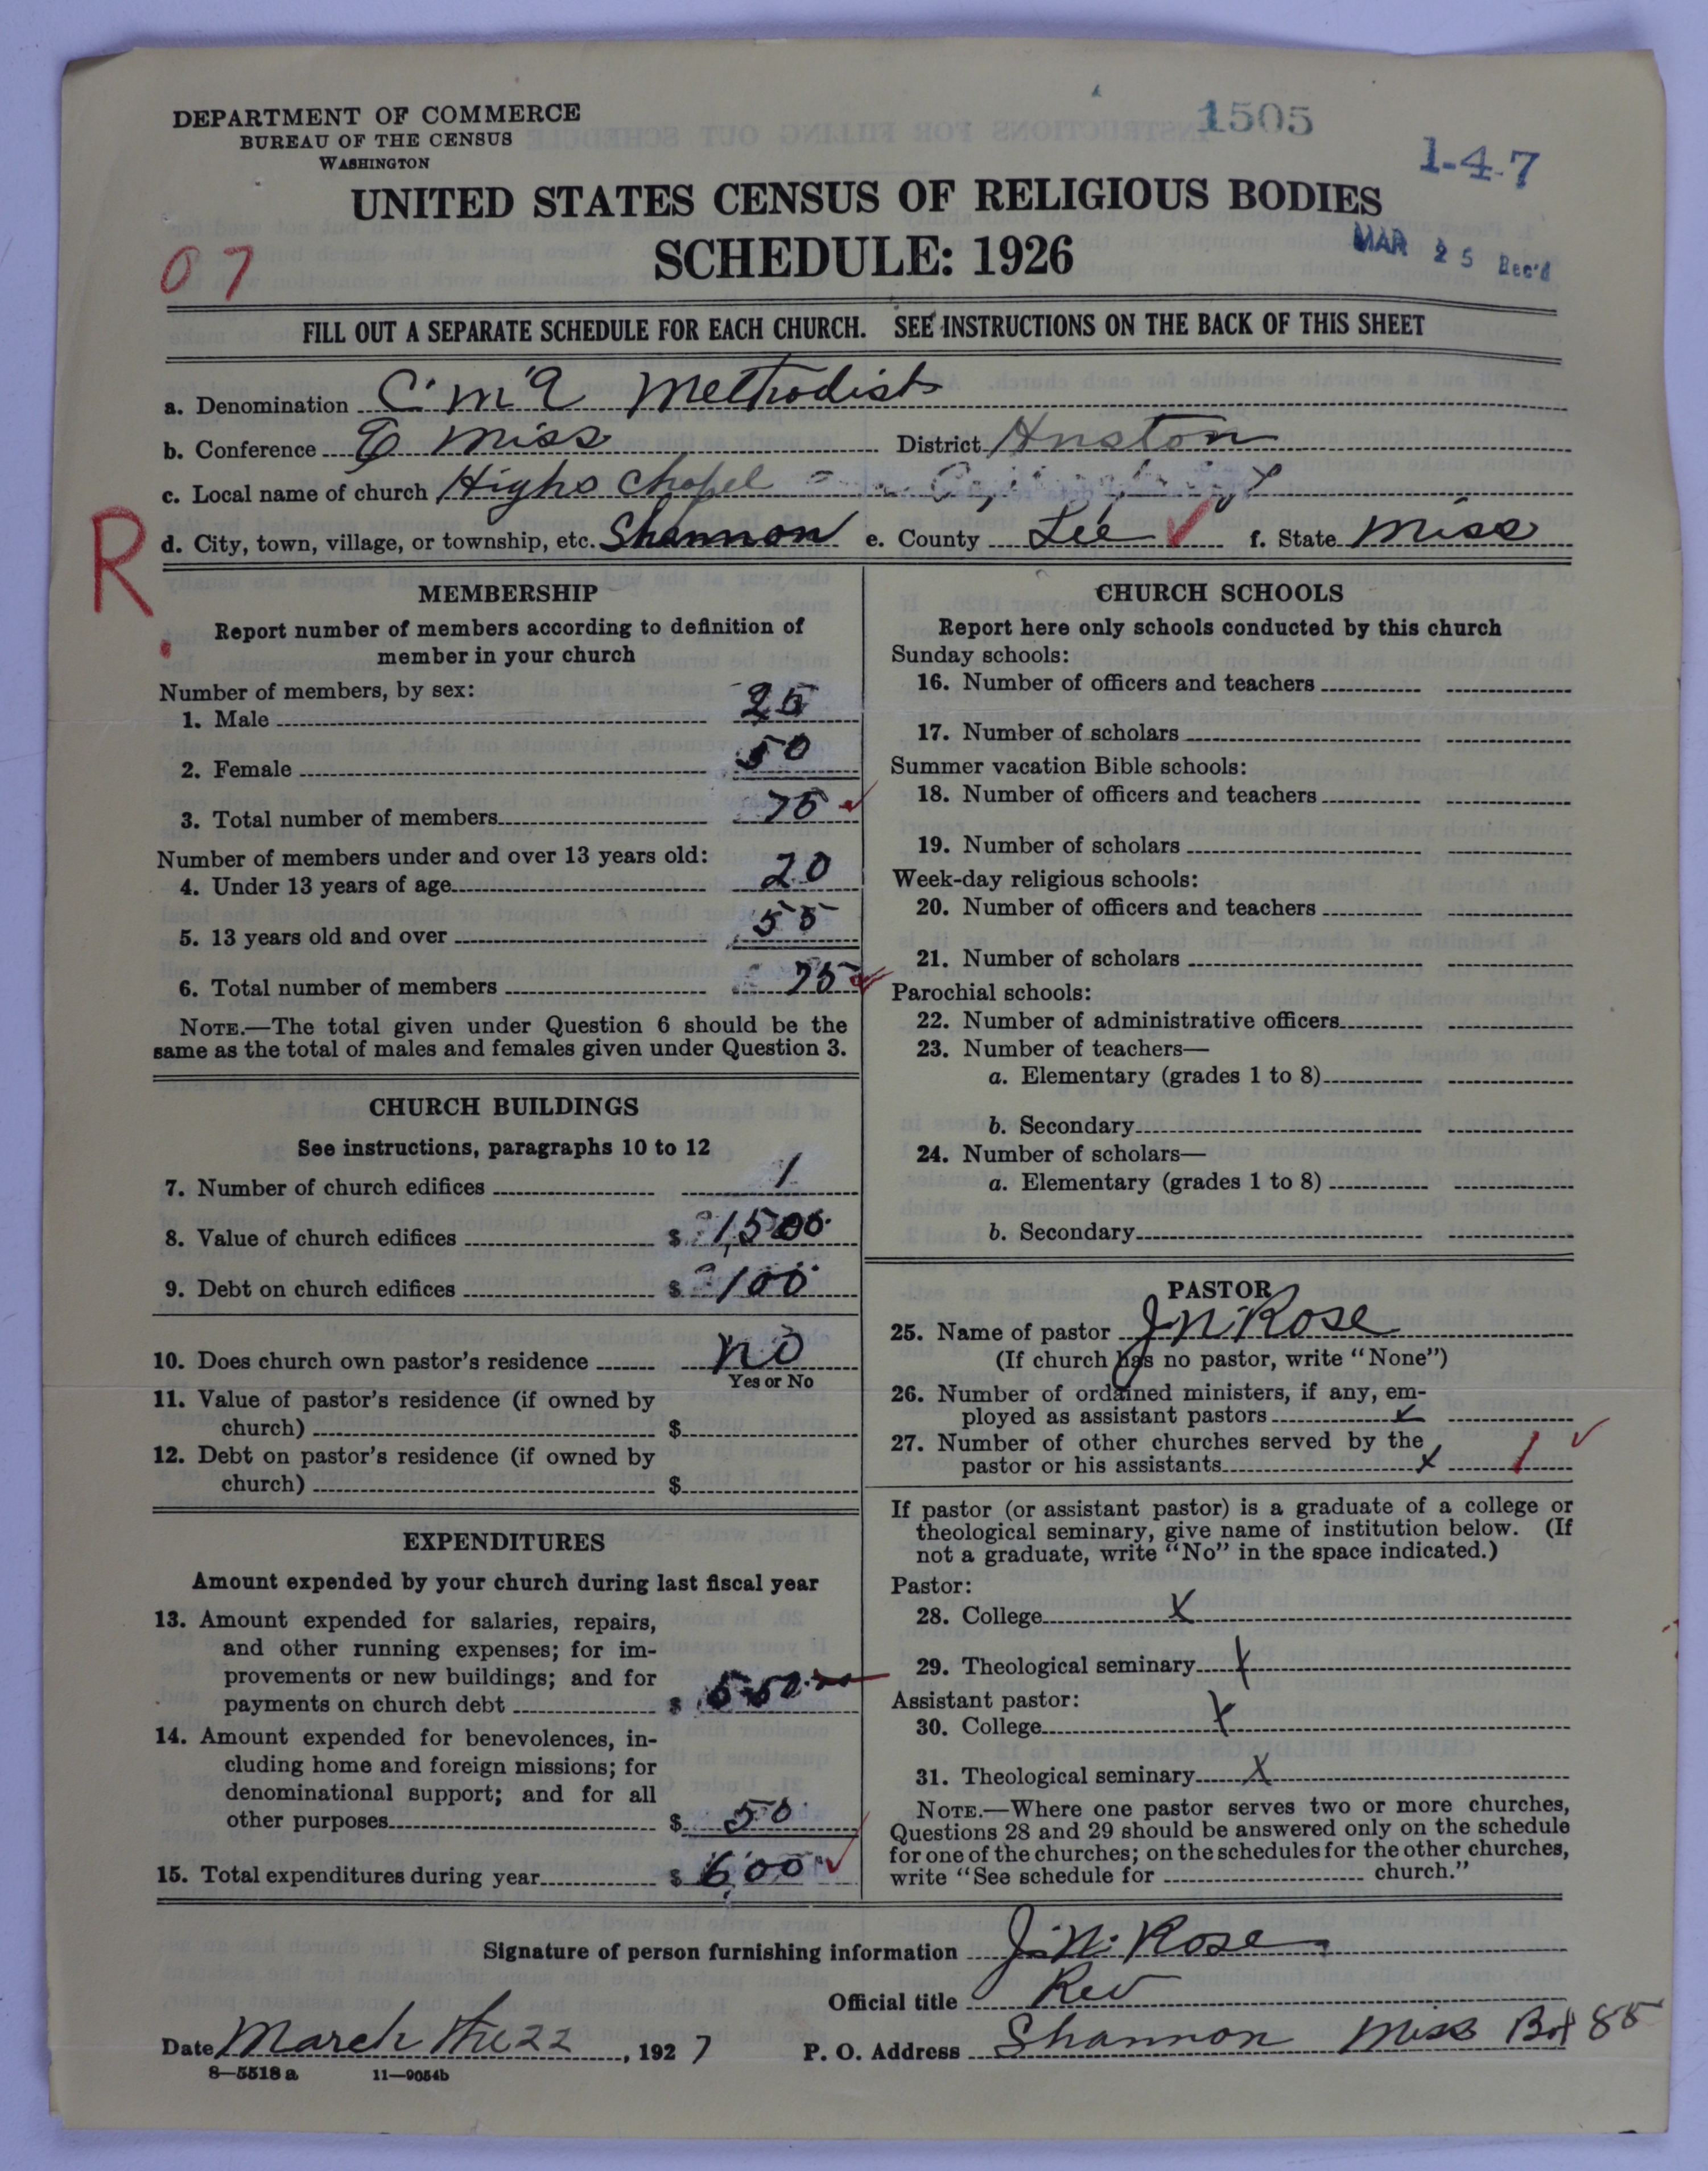 DEPARTMENT OF COMMERCE
BUREAU OF THE CENSUS
WASHINGTON
1505
1-4-7
UNITED STATES CENSUS OF RELIGIOUS BODIES
SCHEDULE: 1926
MAR 25 Rec'd
07
FILL OUT A SEPARATE SCHEDULE FOR EACH CHURCH. SEE INSTRUCTIONS ON THE BACK OF THIS SHEET
a. Denomination C. M. E Methodist
b. Conference E Miss District Huston
c. Local name of church Highs Chapel
R
d. City, town, village, or township, etc. Shannon e. County Lee ✓ f. State Miss
MEMBERSHIP
Report number of members according to definition of
member in your church
Number of members, by sex:
1. Male 25
2. Female 50
3. Total number of members 75 ✓
Number of members under and over 13 years old:
4. Under 13 years of age 20
5. 13 years old and over 55
6. Total number of members 75 ✓
NOTE.—The total given under Question 6 should be the
same as the total of males and females given under Question 3.
CHURCH BUILDINGS
See instructions, paragraphs 10 to 12
7. Number of church edifices 1
8. Value of church edifices $ 1,500
9. Debt on church edifices $ 100
10. Does church own pastor's residence no
Yes or No
11. Value of pastor's residence (if owned by
church) $
12. Debt on pastor's residence (if owned by
church) $
EXPENDITURES
Amount expended by your church during last fiscal year
13. Amount expended for salaries, repairs,
and other running expenses; for im-
provements or new buildings; and for
payments on church debt $ 550
14. Amount expended for benevolences, in-
cluding home and foreign missions; for
denominational support; and for all
other purposes $ 50
15. Total expenditures during year $ 600 ✓
CHURCH SCHOOLS
Report here only schools conducted by this church
Sunday schools:
16. Number of officers and teachers
17. Number of scholars
Summer vacation Bible schools:
18. Number of officers and teachers
19. Number of scholars
Week-day religious schools:
20. Number of officers and teachers
21. Number of scholars
Parochial schools:
22. Number of administrative officers
23. Number of teachers—
a. Elementary (grades 1 to 8)
b. Secondary
24. Number of scholars—
a. Elementary (grades 1 to 8)
b. Secondary
PASTOR
25. Name of pastor J N. Rose
(If church has no pastor, write "None")
26. Number of ordained ministers, if any, em-
ployed as assistant pastors x
27. Number of other churches served by the
pastor or his assistants x 1 ✓
If pastor (or assistant pastor) is a graduate of a college or
theological seminary, give name of institution below. (If
not a graduate, write "No" in the space indicated.)
Pastor:
28. College X
29. Theological seminary X
Assistant pastor:
30. College X
31. Theological seminary X
NOTE.—Where one pastor serves two or more churches,
Questions 28 and 29 should be answered only on the schedule
for one of the churches; on the schedules for the other churches,
write "See schedule for church."
Signature of person furnishing information J. N. Rose
Official title Rev
Date March the 22, 1927 P. O. Address Shannon Miss Box 85
8—5518 a 11—9054b